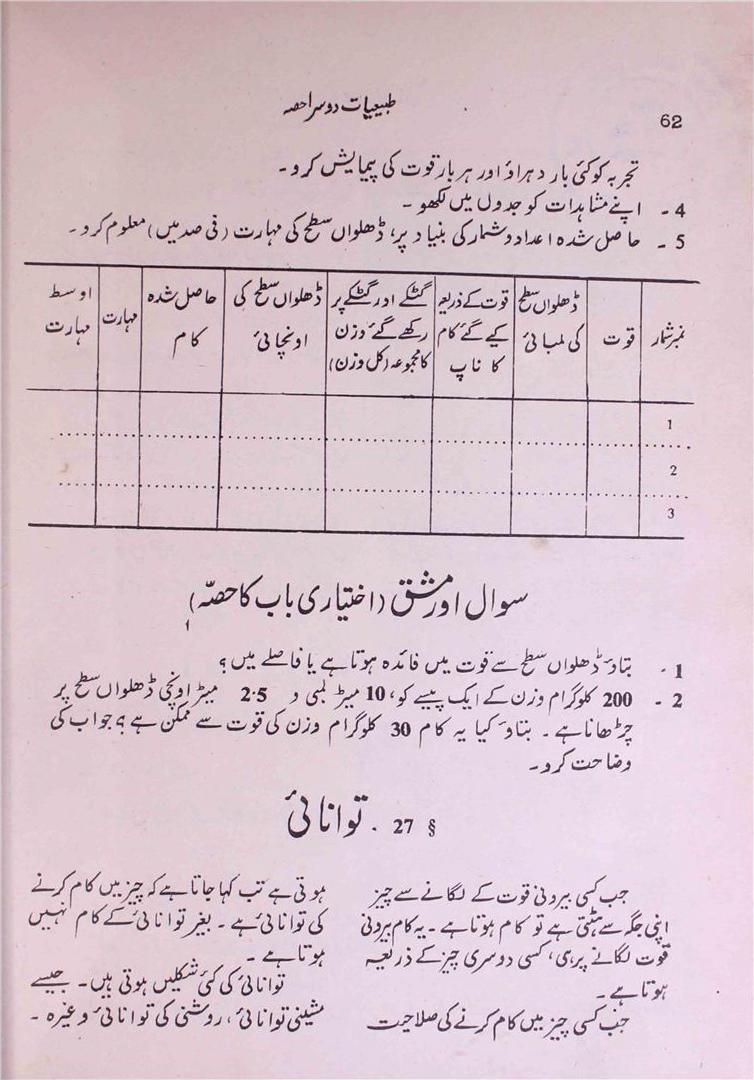 62
طبیعیات دوسرا حصہ
تجربہ کو کئی بار دہراؤ اور ہر بار قوت کی پیمایش کرو۔
4 ۔ اپنے مشاہدات کو جدول میں لکھو ۔
5 ۔ حاصل شدہ اعداد و شمار کی بنیاد پر، ڈھلواں سطح کی مہارت (فی صد میں) معلوم کرو۔
نمبر شمار
قوت
ڈھلواں سطح
کی لمبائی
قوت کے ذریعہ
کیے گئے کام
کا ناپ
گٹکے اور گٹکے پر
رکھے گئے وزن
کا مجموعہ (کل وزن)
ڈھلواں سطح کی
اونچائی
حاصل شدہ
کام
مہارت
اوسط
مہارت
1
2
3
سوال اور مشق (اختیاری باب کا حصّہ)
1 ۔ بتاؤ ڈھلواں سطح سے قوت میں فائدہ ہوتا ہے یا فاصلے میں؟
2 ۔ 200 کلوگرام وزن کے ایک پیپے کو، 10 میٹر لمبی و 2·5 میٹر اونچی ڈھلواں سطح پر
چڑھانا ہے ۔ بتاؤ کیا یہ کام 30 کلوگرام وزن کی قوت سے ممکن ہے؟ جواب کی
وضاحت کرو۔
§ 27 . توانائی
جب کسی بیرونی قوت کے لگانے سے چیز
اپنی جگہ سے ہٹتی ہے تو کام ہوتا ہے ۔ یہ کام بیرونی
قوت لگانے پر ہی، کسی دوسری چیز کے ذریعہ
ہوتا ہے ۔
جب کسی چیز میں کام کرنے کی صلاحیت
ہوتی ہے تب کہا جاتا ہے کہ چیز میں کام کرنے
کی توانائی ہے ۔ بغیر توانائی کے کام نہیں
ہوتا ہے ۔
توانائی کی کئی شکلیں ہوتی ہیں ۔ جیسے
مشینی توانائی، روشنی کی توانائی وغیرہ ۔